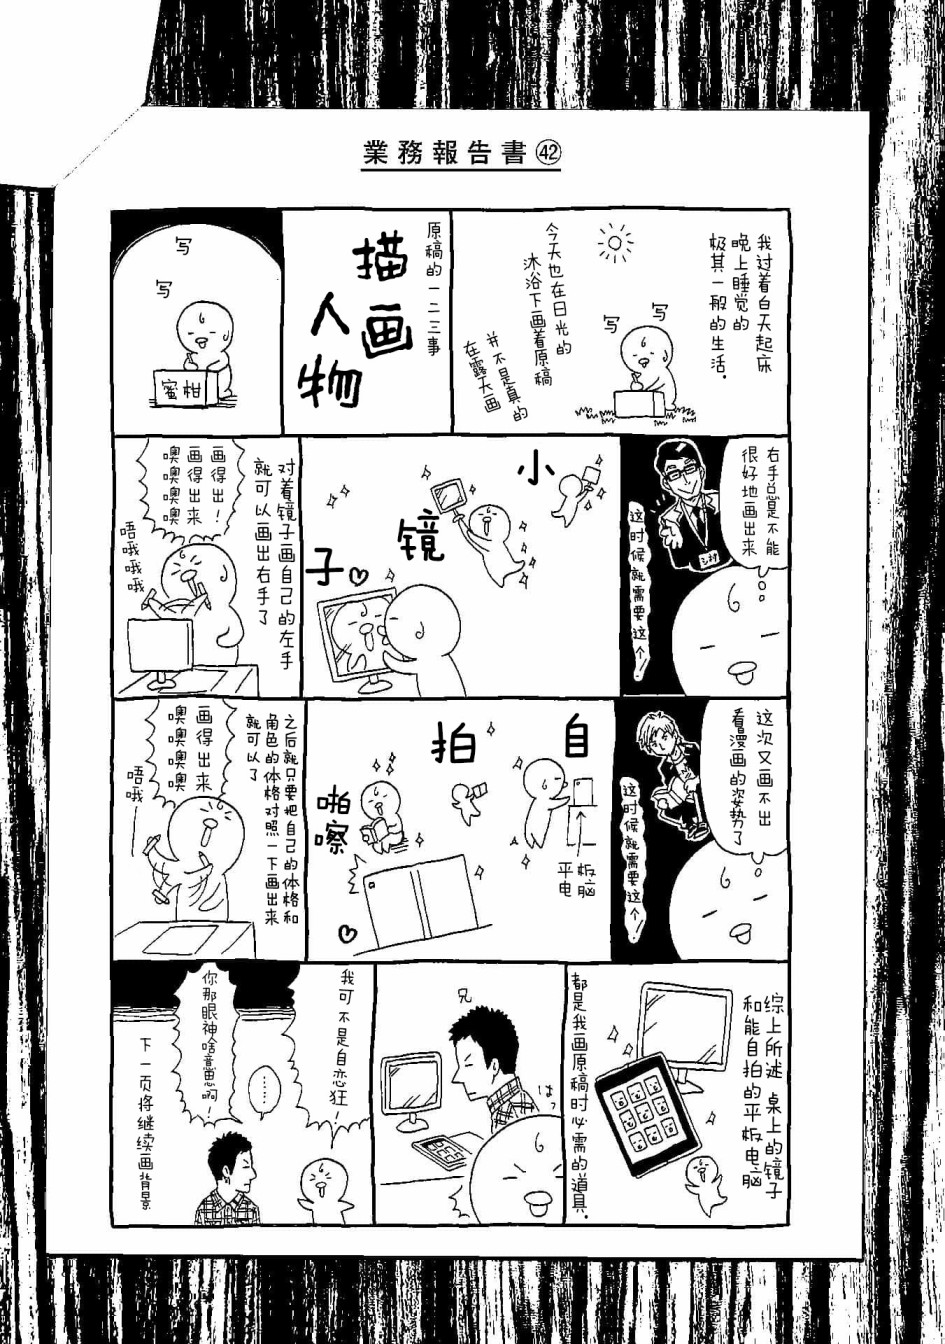 業務報告書㊷
我过着白天起床
晚上睡觉的
极其一般的生活.
写
写
今天也在日光的
沐浴下画着原稿
并不是真的
在露天画
原稿的一二三事
描画
人物
写
写
蜜柑
右手总是不能
很好地画出来
这时候就需要这个!
小
镜
子
对着镜子画自己的左手
就可以画出右手了
画得出!
画得出来
噢噢噢噢
唔哦哦哦
这次又画不出
看漫画的姿势了
这时候就需要这个!
自
拍
平板
电脑
啪嚓
之后就只要把自己的体格和
角色的体格对照一下画出来
就可以了
画得出来
噢噢噢噢
唔哦—
综上所述 桌上的镜子
和能自拍的平板电脑
都是我画原稿时必需的道具.
兄
はっ
我可不是自恋狂!
……
你那眼神啥意思啊!
下一页将继续画背景